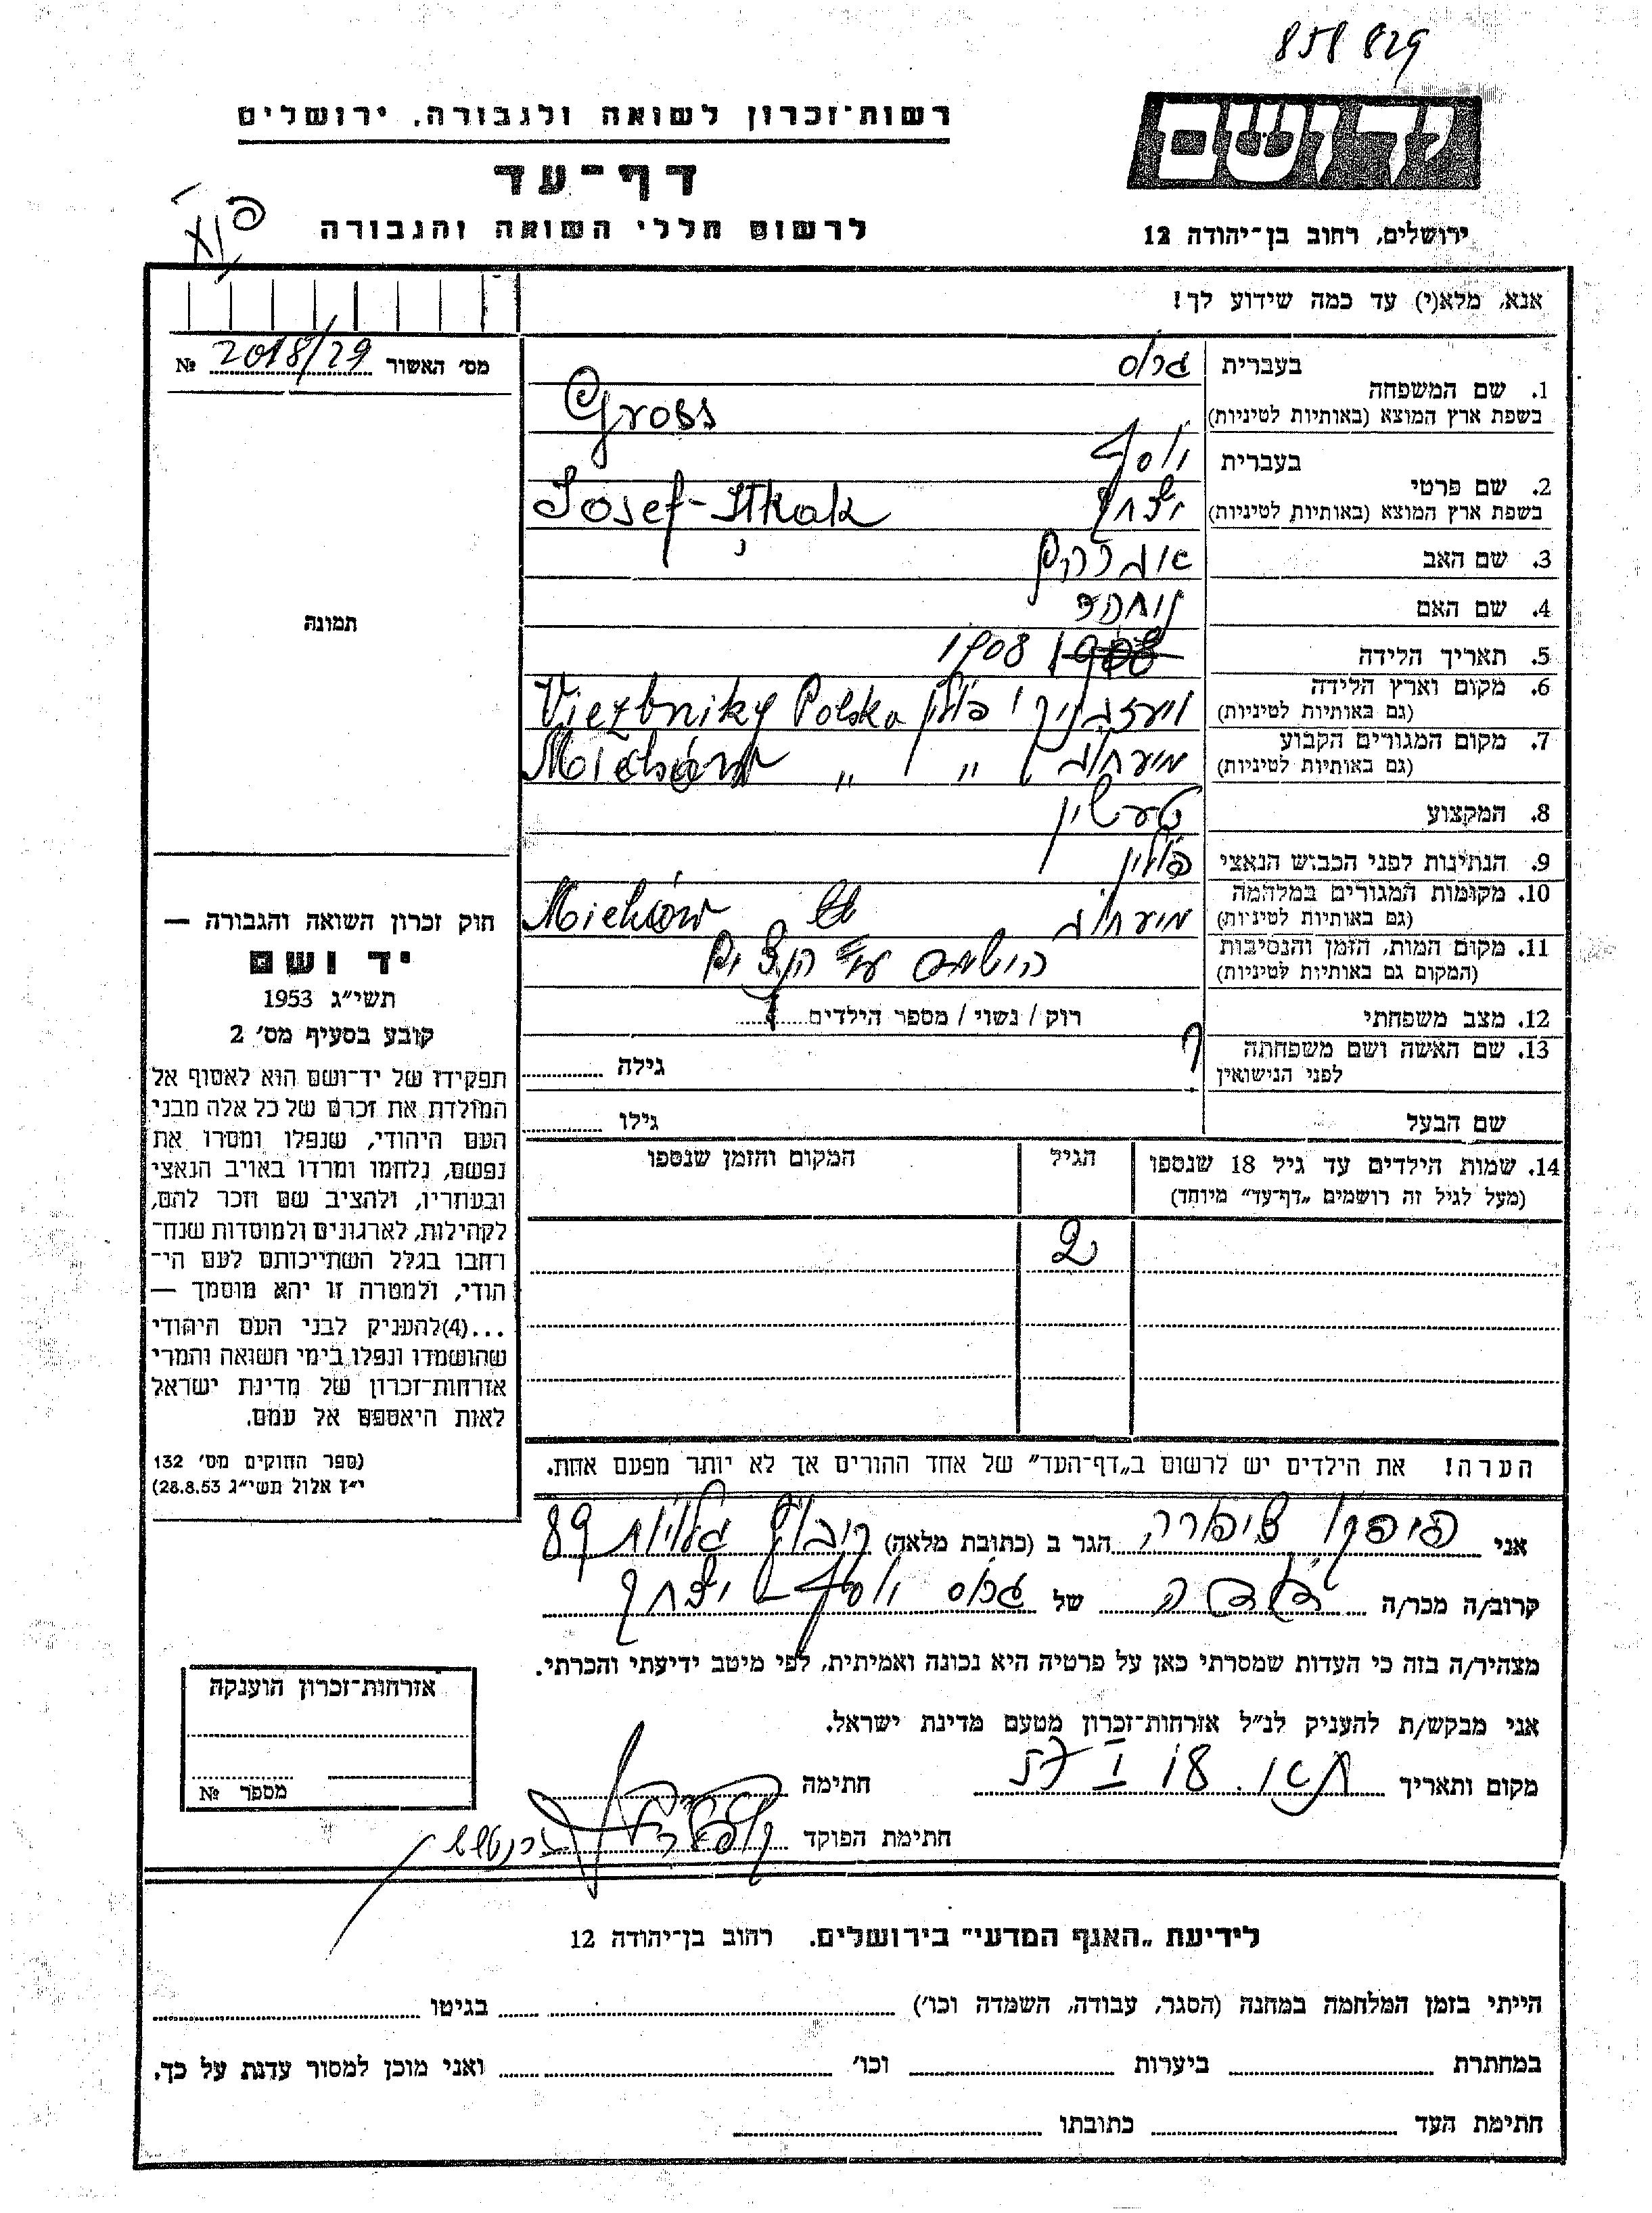 858 829
רשות־זכרון לשואה ולגבורה, ירושלים
דף־עד
לרשום חללי השואה והגבורה
יד ושם
ירושלים, רחוב בן־יהודה 12
אנא, מלא(י) עד כמה שידוע לך!
מס׳ האשור 2018/29 №
תמונה
חוק זכרון השואה והגבורה —
יד ושם
תשי״ג 1953
קובע בסעיף מס׳ 2
תפקידו של יד־ושם הוא לאסוף אל
המולדת את זכרם של כל אלה מבני
העם היהודי, שנפלו ומסרו את
נפשם, נלחמו ומרדו באויב הנאצי
ובעוזריו, ולהציב שם וזכר להם,
לקהילות, לארגונים ולמוסדות שנח־
רחבו בגלל השתייכותם לעם הי־
הודי, ולמטרה זו יהא מוסמך —
...(4)להעניק לבני העם היהודי
שהושמדו ונפלו בימי השואה והמרי
אזרחות־זכרון של מדינת ישראל
לאות היאספם אל עמם.
(ספר החוקים מס׳ 132
י״ז אלול תשי״ג 28.8.53)
1. שם המשפחה בעברית גרוס
בשפת ארץ המוצא (באותיות לטיניות) Gross
2. שם פרטי בעברית יוסף
יצחק
בשפת ארץ המוצא (באותיות לטיניות) Josef-Itkak
3. שם האב אברהם
4. שם האם
5. תאריך הלידה 1908 1908
6. מקום וארץ הלידה פולין Polska
(גם באותיות לטיניות)
7. מקום המגורים הקבוע מיעחוב " " Miechów
(גם באותיות לטיניות)
8. המקצוע
9. הנתינות לפני הכבוש הנאצי פולין
10. מקומות המגורים במלחמה מיעחוב Miehów
(גם באותיות לטיניות)
11. מקום המות, הזמן והנסיבות
(המקום גם באותיות לטיניות)
12. מצב משפחתי רוק / נשוי / מספר הילדים 1
13. שם האשה ושם משפחתה ? גילה
לפני הנישואין
שם הבעל גילו
14. שמות הילדים עד גיל 18 שנספו הגיל המקום והזמן שנספו
(מעל לגיל זה רושמים „דף־עד״ מיוחד)
2
הערה! את הילדים יש לרשום ב„דף־העד״ של אחד ההורים אך לא יותר מפעם אחת.
אני ציפורה הגר ב (כתובת מלאה) גלויות 89
קרוב/ה מכר/ה דודה של גרוס יוסף - יצחק
מצהיר/ה בזה כי העדות שמסרתי כאן על פרטיה היא נכונה ואמיתית, לפי מיטב ידיעתי והכרתי.
אני מבקש/ת להעניק לנ״ל אזרחות־זכרון מטעם מדינת ישראל.
מקום ותאריך 57 I 18 חתימה
חתימת הפוקד
אזרחות־זכרון הוענקה
מספר №
לידיעת „האגף המדעי״ בירושלים. רחוב בן־יהודה 12
הייתי בזמן המלחמה במחנה (הסגר, עבודה, השמדה וכו׳) בגיטו
במחתרת ביערות וכו׳ ואני מוכן למסור עדות על כך.
חתימת העד כתובתו